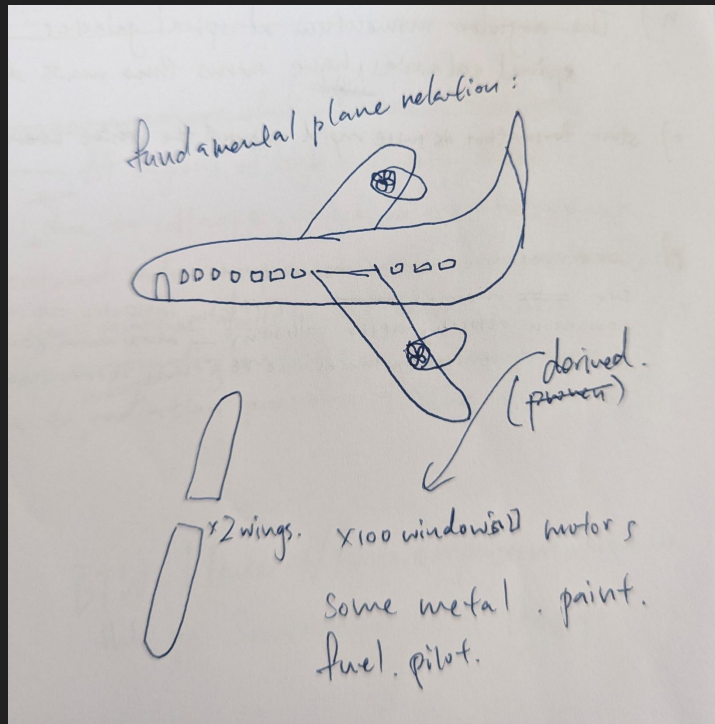 fundamental plane relation:
derived.
(proven)
×2 wings.
×100 windows motors
some metal. paint.
fuel. pilot.